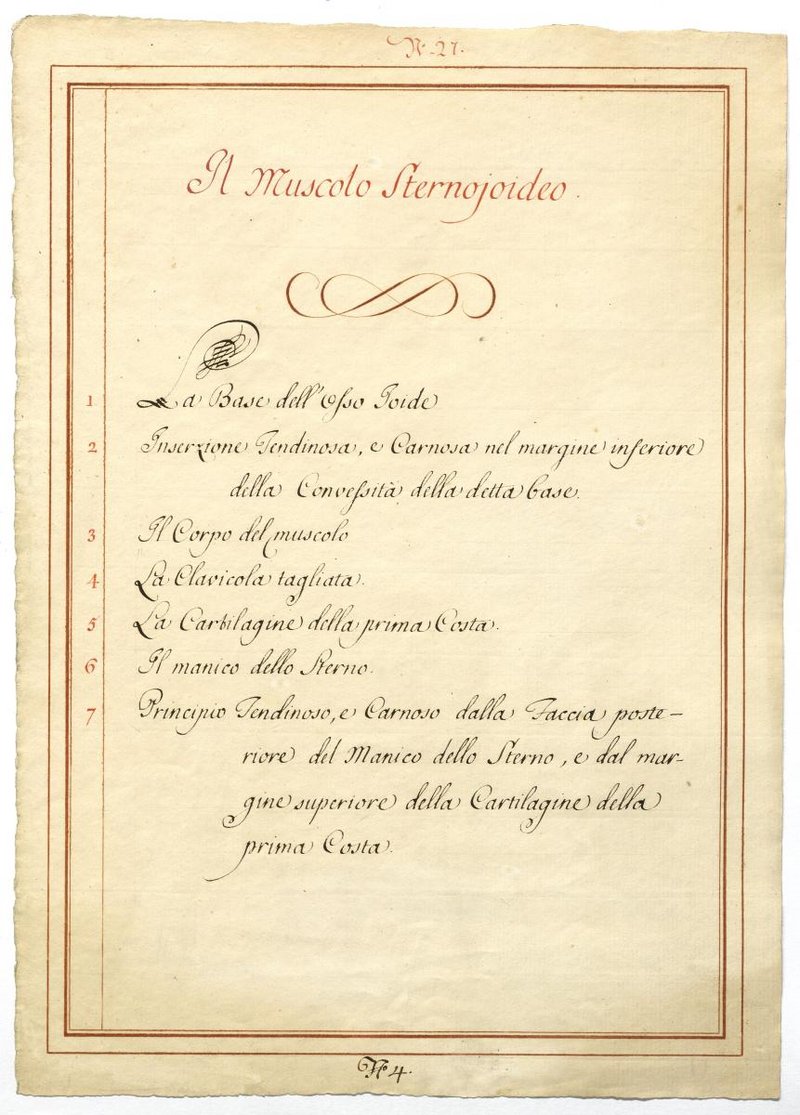 N.° 27.
Il Muscolo Sternojoideo.
1 La Base dell'Osso Joide
2 Inserzione Tendinosa, e Carnosa nel margine inferiore
della Convessità della detta base.
3 Il Corpo del muscolo
4 La Clavicola tagliata.
5 La Cartilagine della prima Costa.
6 Il manico dello Sterno.
7 Principio Tendinoso, e Carnoso dalla Faccia poste-
riore del Manico dello Sterno, e dal mar-
gine superiore della Cartilagine della
prima Costa.
N.° 4.